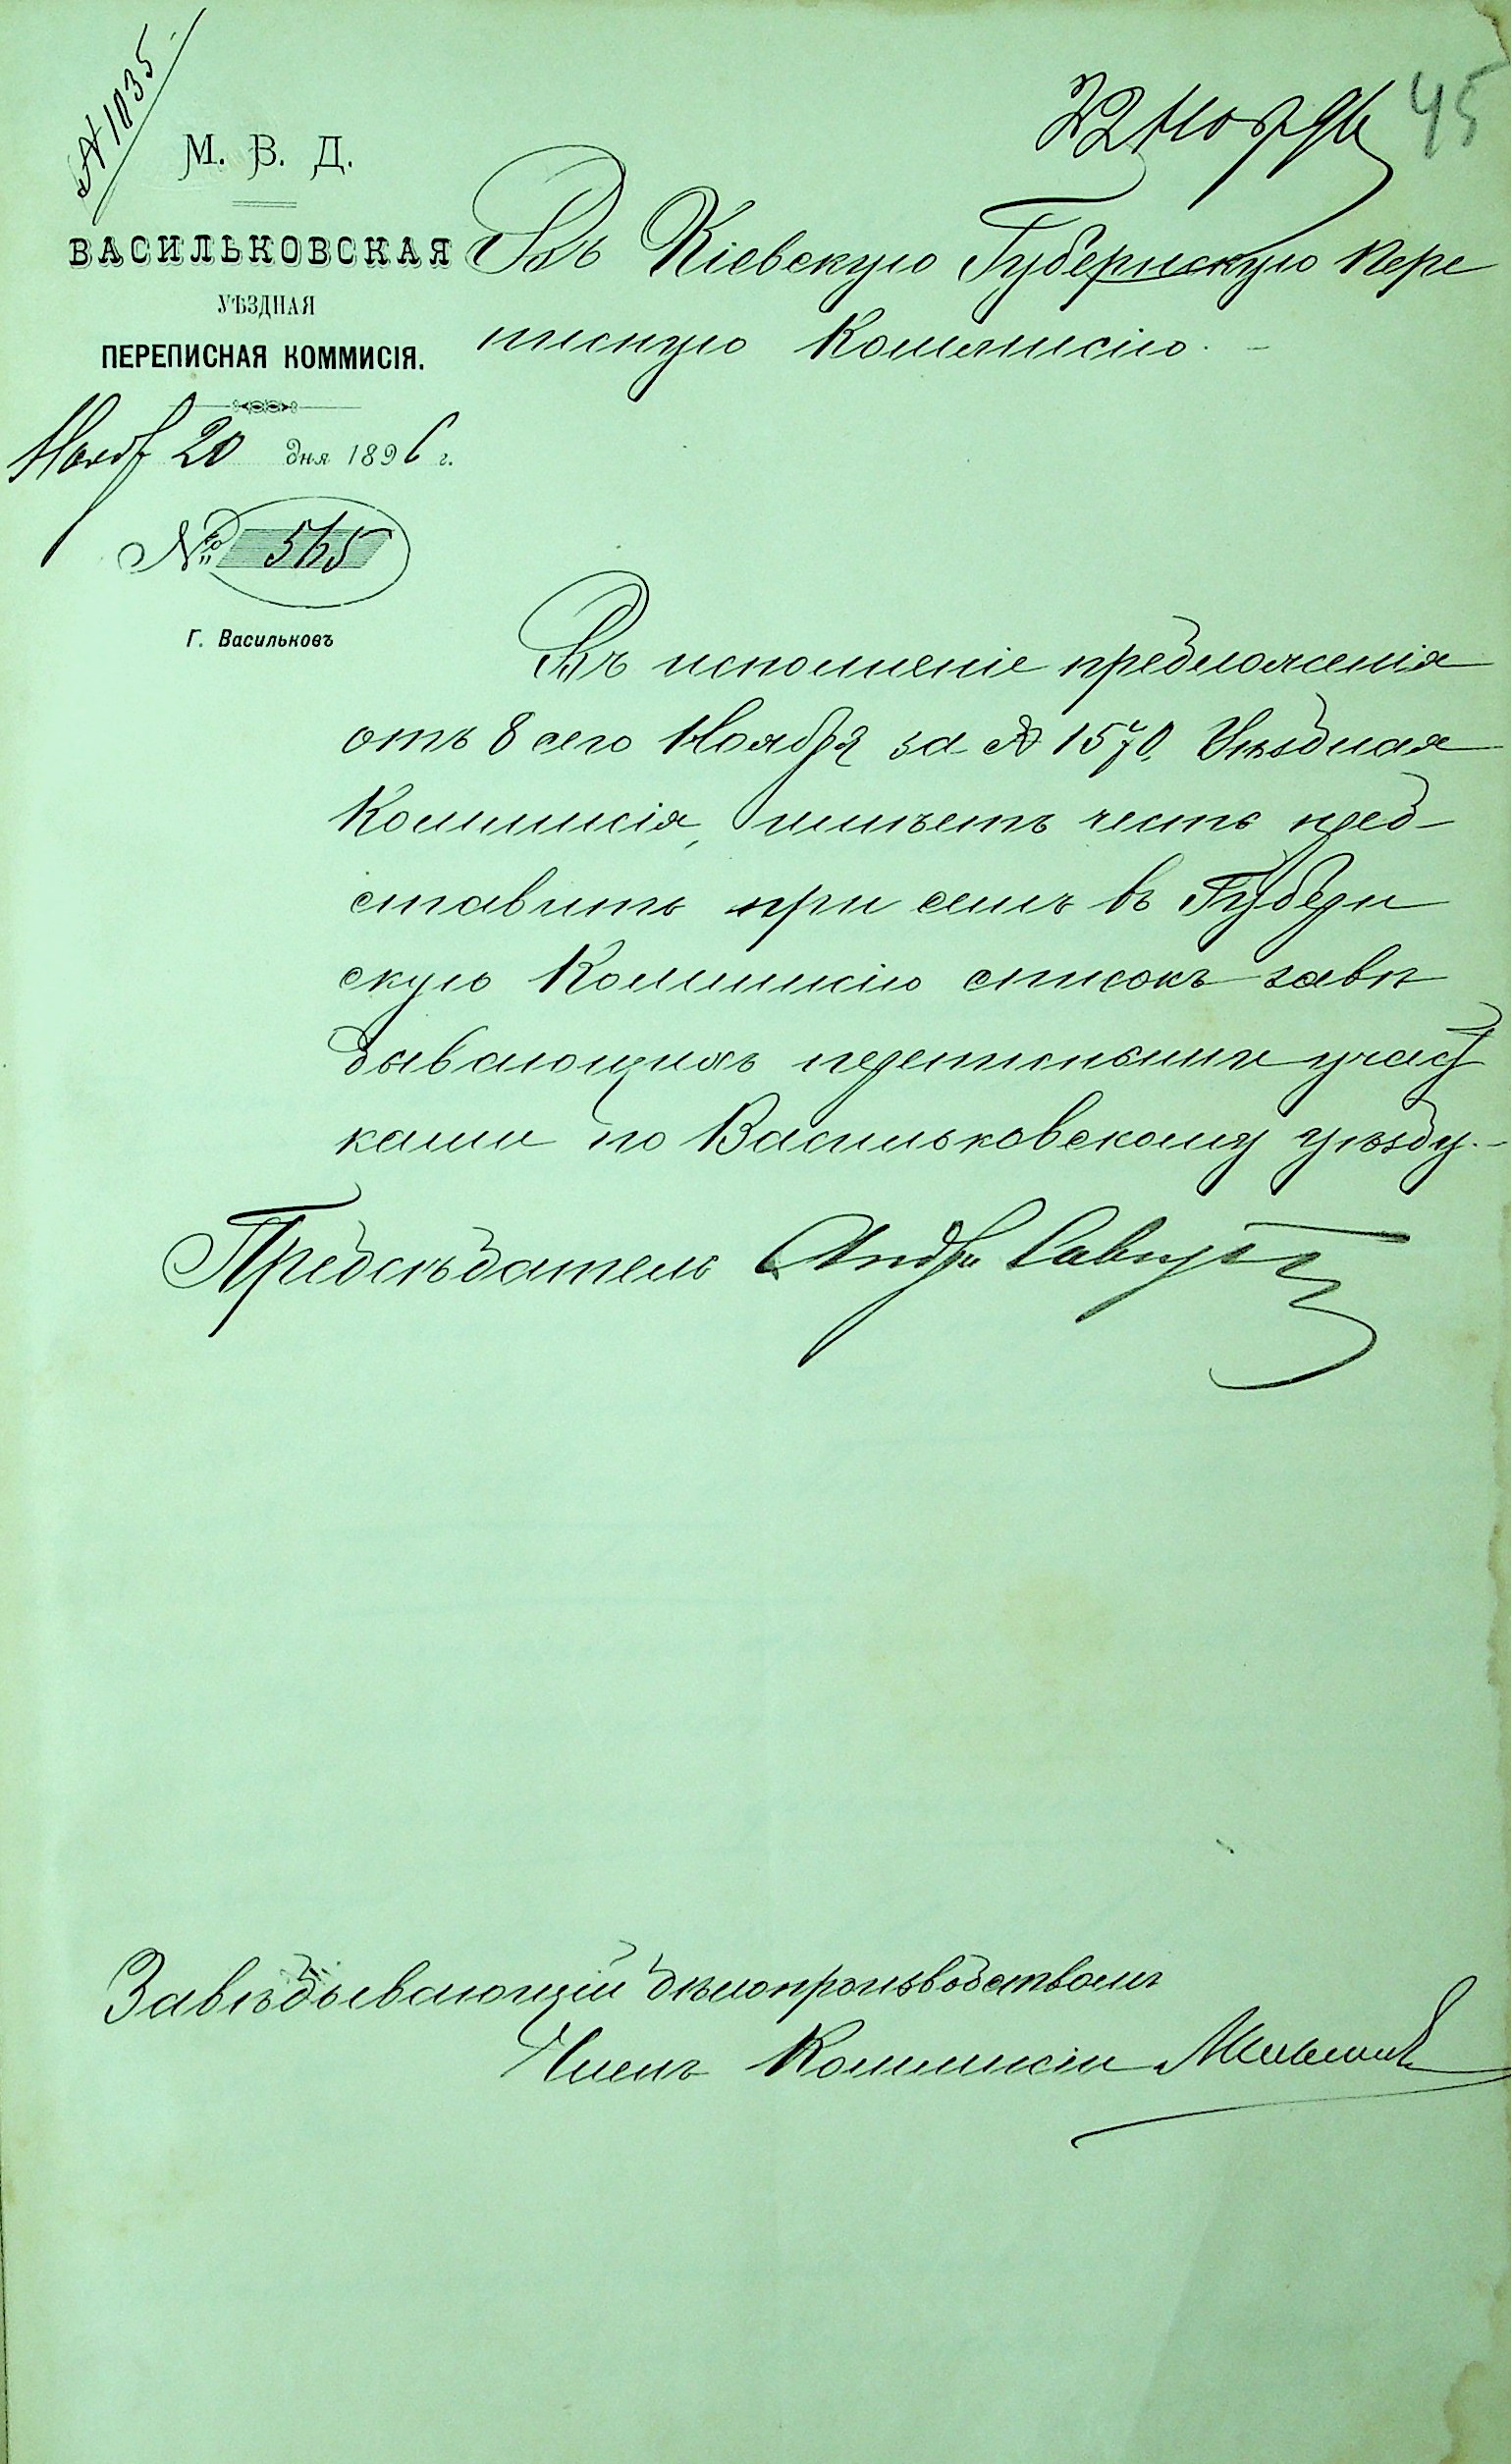 № 1035
22 Нояб 96
45
М. В. Д.
ВАСИЛЬКОВСКАЯ
УѢЗДНАЯ
ПЕРЕПИСНАЯ КОММИСІЯ.
Нояб 20 дня 1896 г.
№ 565
Г. Васильковъ
Въ Кіевскую Губернскую пере
писную Коммисію. –
Въ исполненіе предложенія
отъ 8 сего Ноября за № 1570, Уѣздная
Коммисія, имѣетъ честь пред-
ставить при семъ въ Губерн
скую Коммисію списокъ завѣ
дывающихъ переписными участ
ками по Васильковскому уѣзду. –
Предсѣдатель
Завѣдывающій дѣлопроизводствомъ
Членъ Коммисіи